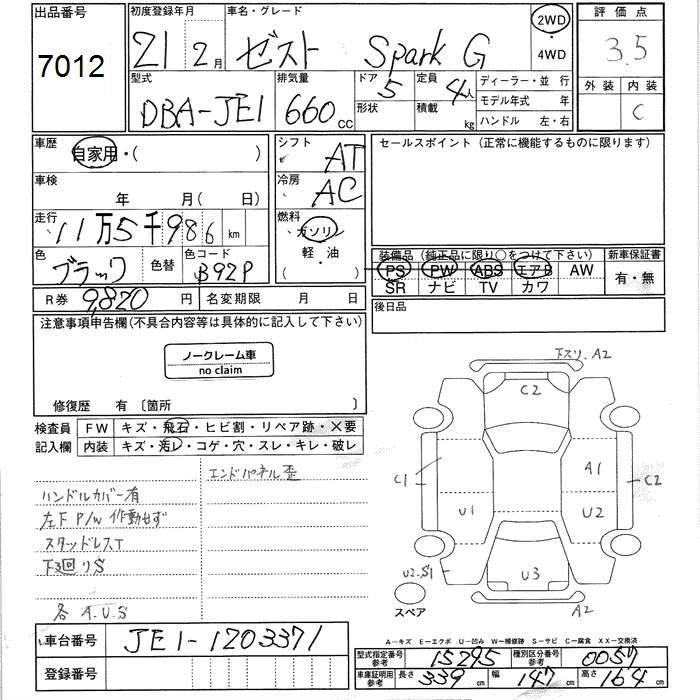 出品番号
7012
初度登録年月
21 2月
車名・グレード
ゼスト Spark G
2WD
・
4WD
評価点
3.5
外装 内装
C
型式
DBA-JE1
排気量
660 cc
ドア
5
形状
定員
4人
積載 kg
ディーラー・並行
モデル年式 年
ハンドル 左・右
車歴
自家用・( )
シフト
AT
セールスポイント(正常に機能するものに限ります)
車検
年 月( 日)
冷房
AC
走行
11万5千986 km
燃料
ガソリン
軽・油
色
ブラック
色替
色コード
B92P
装備品(純正品に限り○をつけて下さい)
新車保証書
PS PW ABS エアB AW
SR ナビ TV カワ
有・無
R券 9,820 円
名変期限 月 日
後日品
注意事項申告欄(不具合内容等は具体的に記入して下さい)
ノークレーム車
no claim
修復歴 有〔箇所 〕
検査員
記入欄
FW キズ・飛石・ヒビ割・リペア跡・X要
内装 キズ・汚レ・コゲ・穴・スレ・キレ・破レ
エンドパネル歪
ハンドルカバー有
左F P/W 作動せず
スタッドレスT
下廻りS
各 A.U.S
下スリ.A2
C2
C1
A1
C2
U1
U2
U2.S1
U3
A2
スペア
A−キズ E−エクボ U−凹み W−補修跡 S−サビ C−腐食 XX−交換済
車台番号 JE1-1203371
登録番号
型式指定番号
参考
15295
種別区分番号
参考
0057
車庫証明用
参考
長さ 339 cm 幅 147 cm 高さ 164 cm